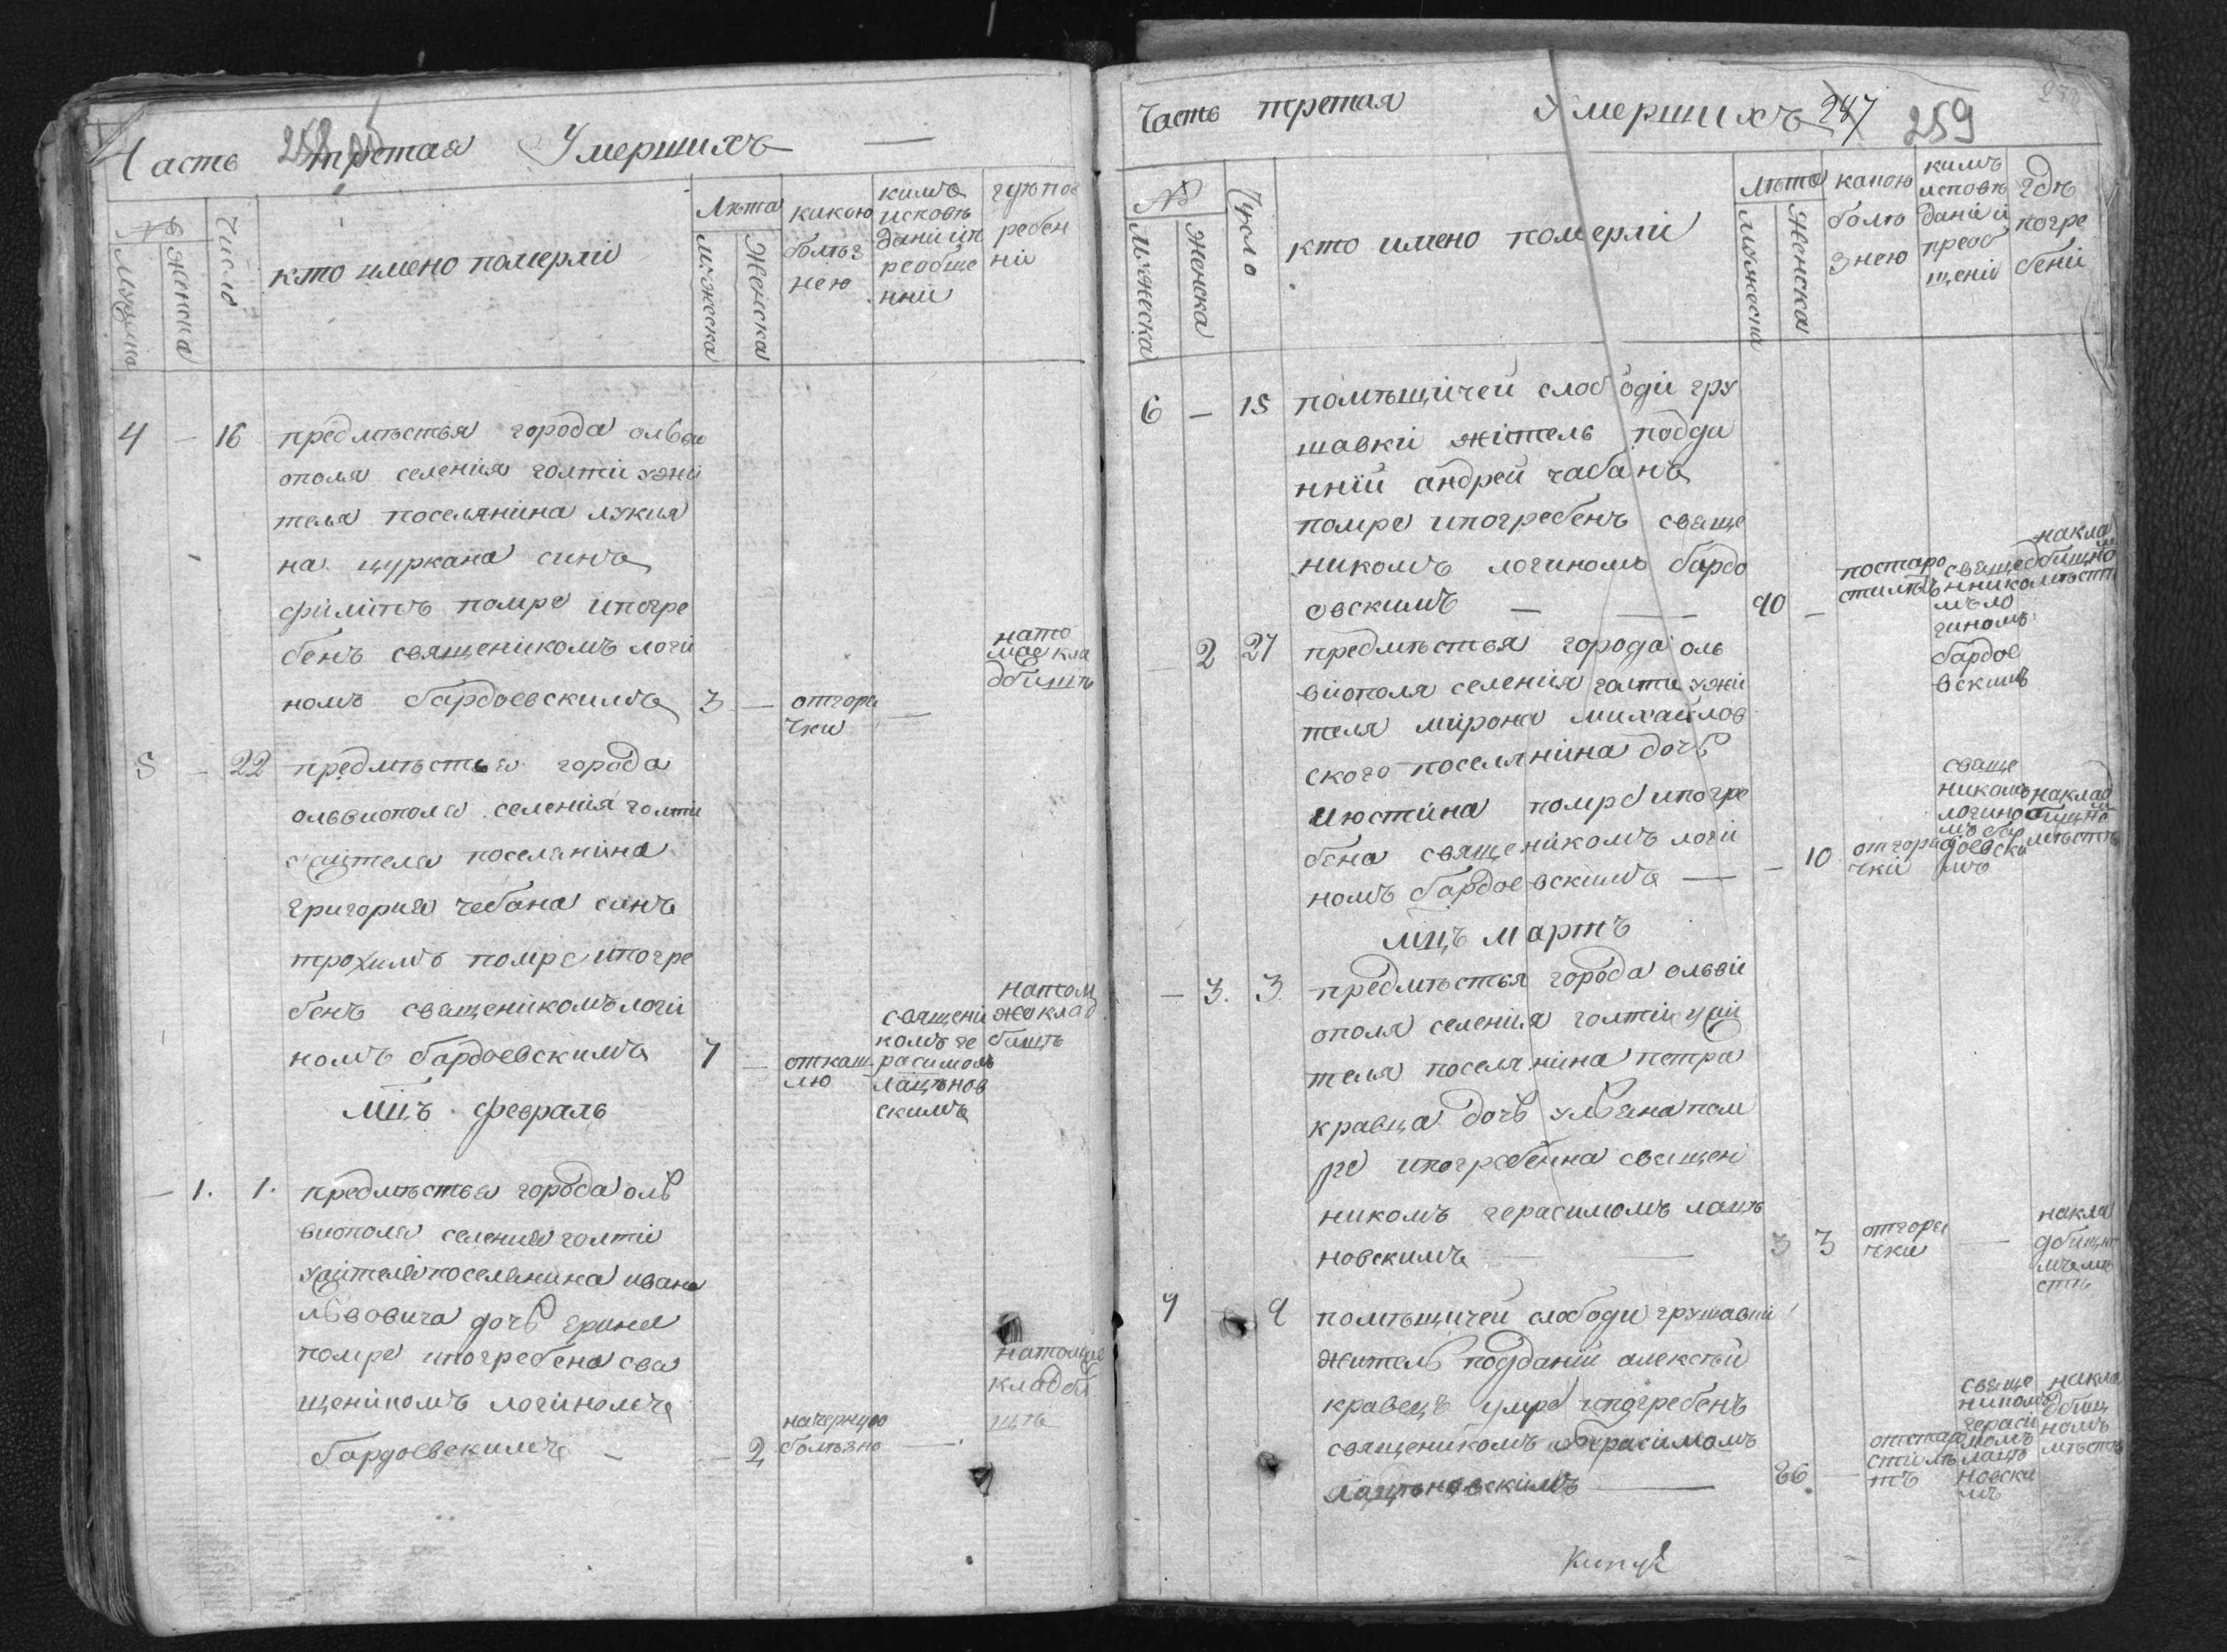 Часть третая Умершихъ
№
Мужеска
Женска
Число
кто имено померлй
Лѣта
мужеска
женска
какою
болѣз
нею
кимъ
исповѣ
данй ип
реобще
ннй
гдѣ пог
ребен
нй
4 — 16 предмѣстья города ольви
ополя селения голтй ужи
теля поселянина лукия
на цуркана синъ
филипъ помре ипогре
бенъ священикомъ логи
номъ бардоевскимъ 3 — отгоря
чки
нато
мже кла
дбищѣ
5 — 22 предмѣстья города
ольвиополя селения голти
ужителя поселянина
григория чебана синъ
трохимъ помре ипогре
бенъ священикомъ логи
номъ бардоевскимъ 7 — откаш
лю
священи
комъ ге
расимомъ
лацѣнов
скимъ
натом
жеклад
бищѣ
мцъ февраль
— 1. 1. предмѣстья города оль
виополя селения голти
ужителя поселянина ивана
львовича дочь ерина
помре ипогребена свя
щеникомъ логиномъ
бардоевскимъ — — 2 начерную
болѣзно —
натомже
кладби
щѣ
Часть третая Умершихъ 247 259
№
Мужеска
Женска
Число
кто имено померлй
Лѣта
мужеска
Женска
какою
болѣ
знею
кимъ
исповѣ
данй и
преоб
щенй
гдѣ
погре
бенй
6 — 15 помѣщичей слободи гру
шавки житель подда
ннй андрей чабанъ
помре ипогребенъ свяще
никомъ логиномъ бардо
евскимъ — 90 — постаро
стилѣть
свяще
нико
мъ ло
гиномъ
бардое
вскимъ
накла
дбищно
мѣстѣ
— 2 27 предмѣстья города оль
виополя селения голти ужи
теля мирона михайлов
ского поселянина дочь
июстина помре ипогре
бена священикомъ логи
номъ бардоевскимъ — — 10 отгоря
чки
свяще
никомъ
логино
мъ бар
доевски
мъ
наклад
бищно
мѣстѣ
мцъ мартъ
— 3. 3. предмѣстья города ольви
ополя селения голти ужи
теля поселянина петра
кравца дочь ульянапом
ре ипогребенна священ
никомъ герасимомъ лацѣ
новскимъ — 3 3 отгоря
чки —
накла
дбищно
мъ мѣ
стѣ
7 — 9 помѣщичей слободи грушавки
житель подданй алексѣй
кравецъ умре ипогребенъ
священикомъ герасимомъ
лацѣновскимъ — 86. — отстар
стилѣ
тъ
свяще
никомъ
гераси
момъ
лацѣ
новски
мъ
накла
дбищ
номъ
мѣстѣ